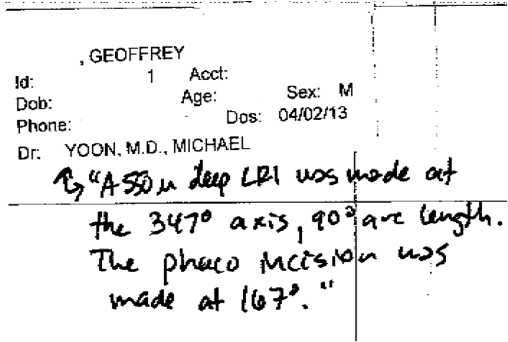 , GEOFFREY
Id: 1 Acct:
Dob: Age: Sex: M
Phone: Dos: 04/02/13
Dr: YOON, M.D., MICHAEL
"A 550 µ deep LRI was made at
the 347° axis, 90° arc length.
The phaco incision was
made at 167°."